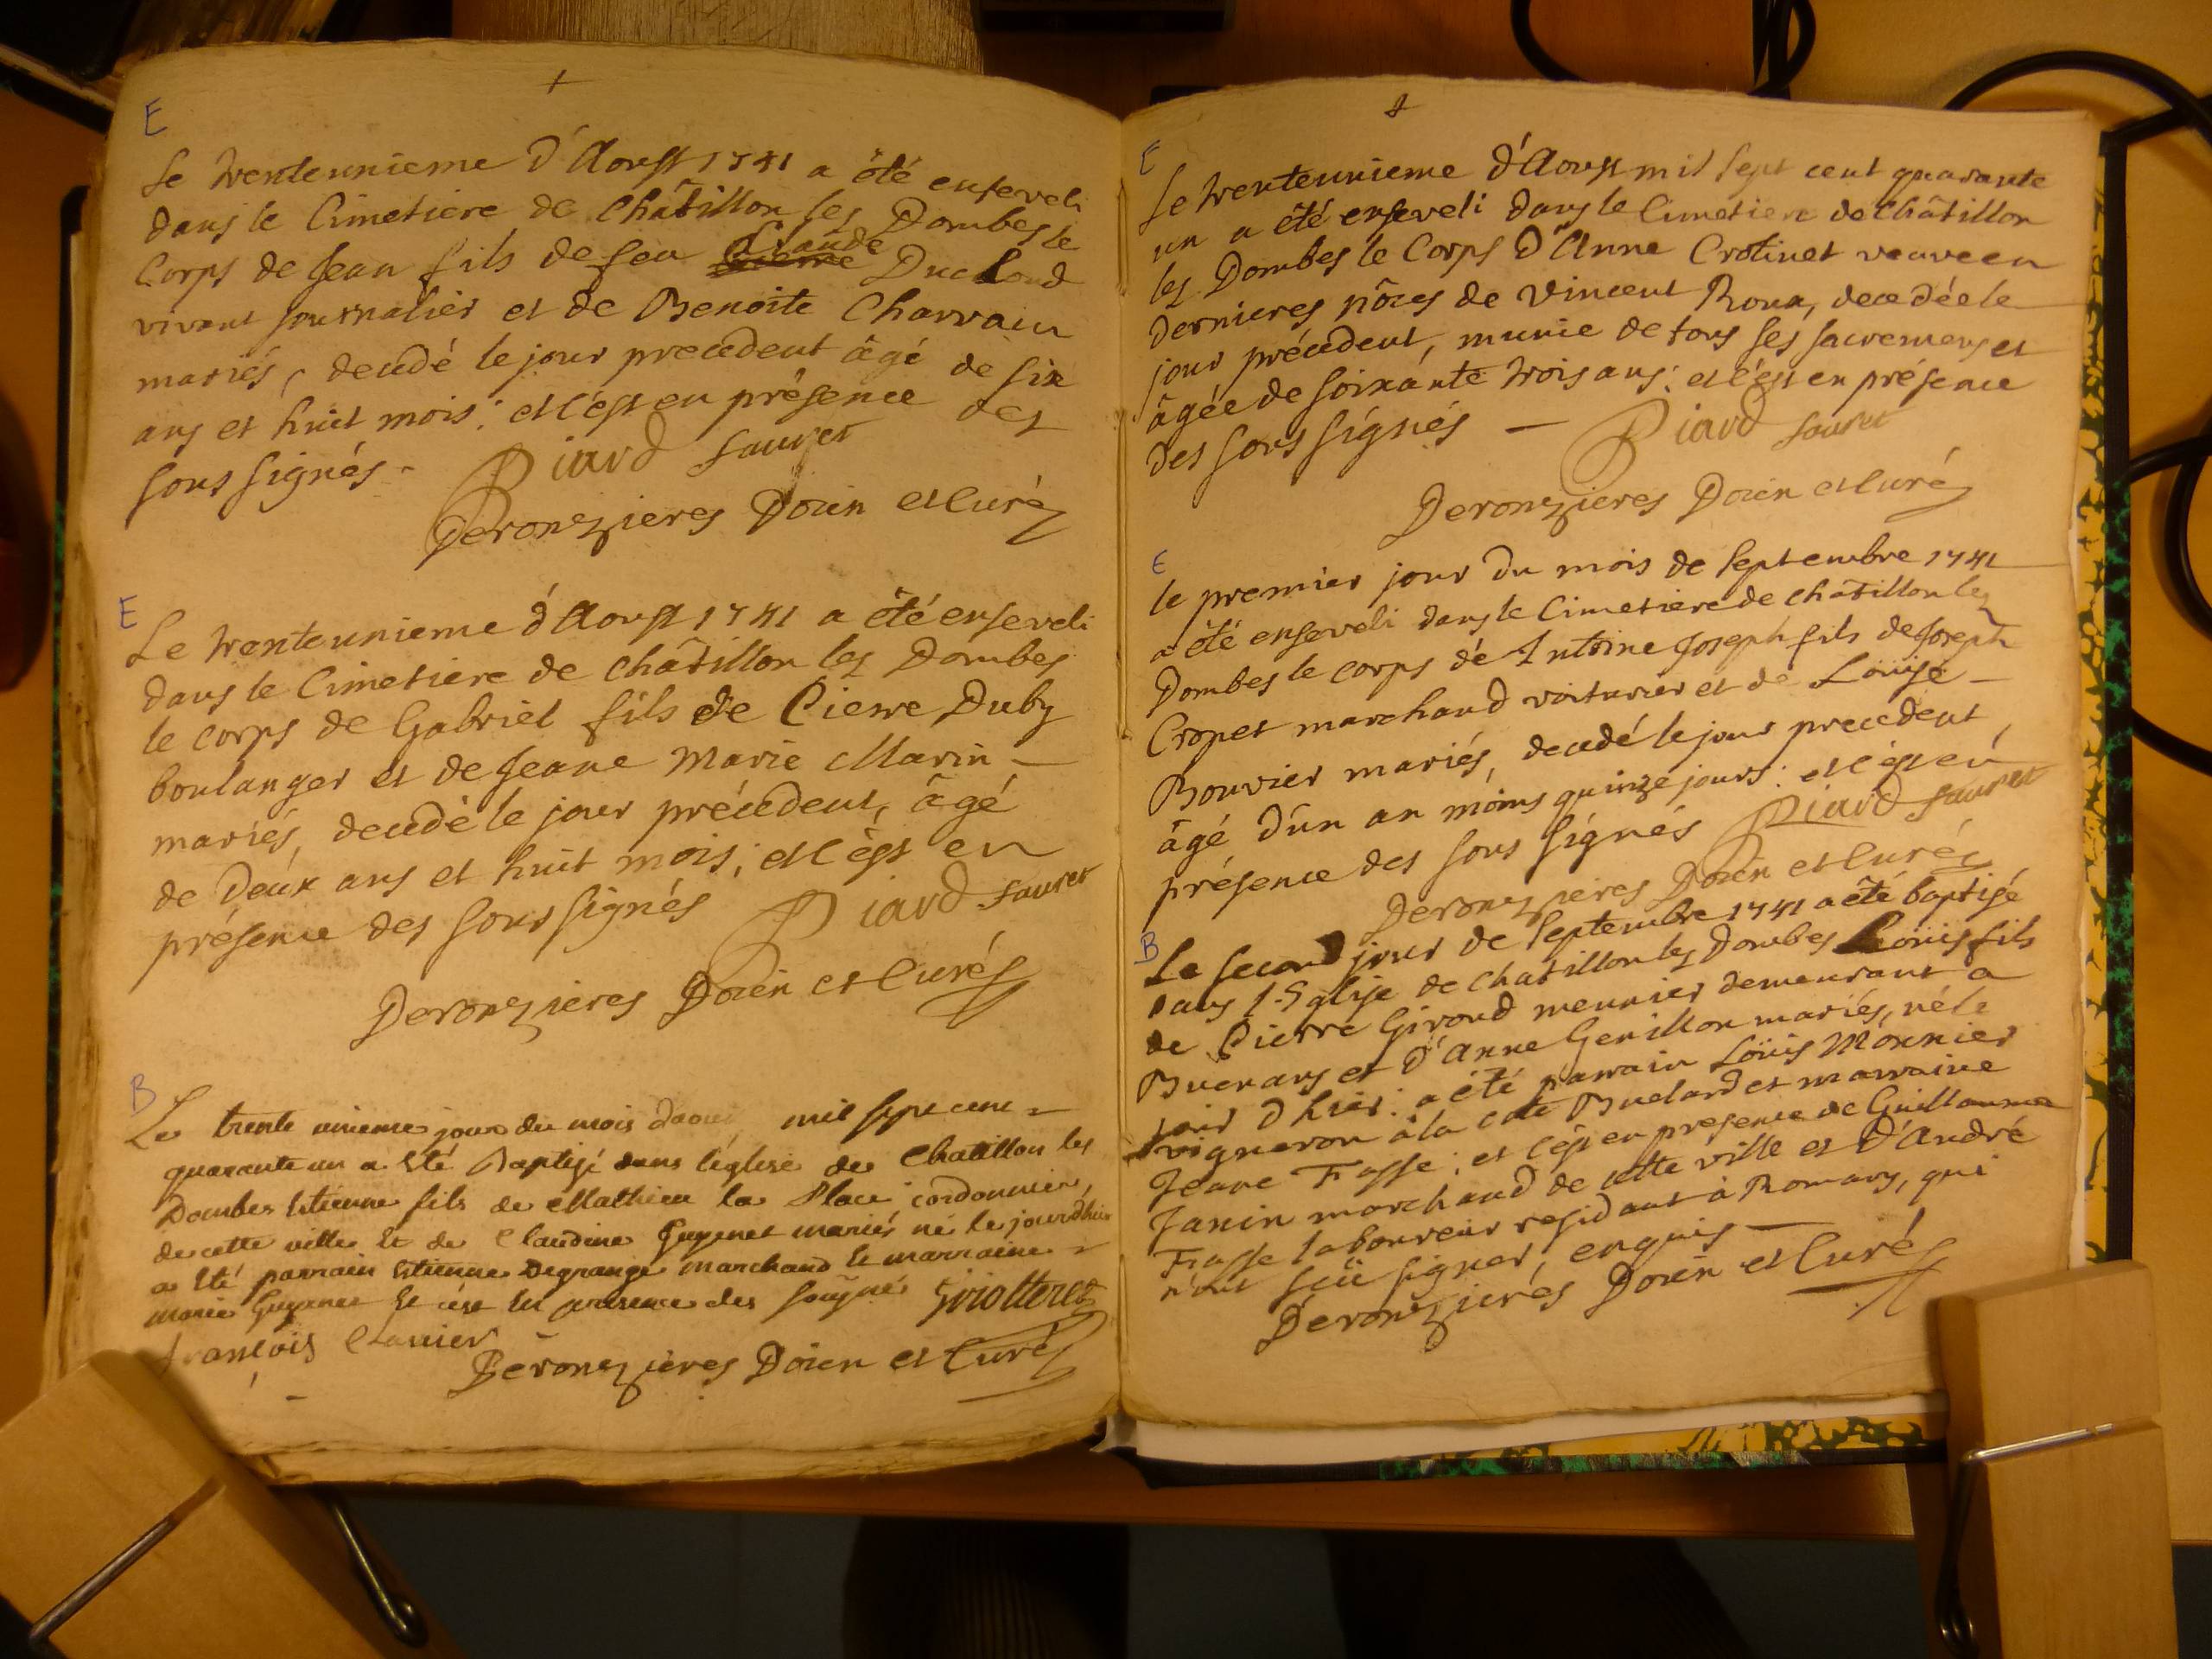 E
Le trenteunieme d'Aoust 1741 a êté enseveli
dans le Cimetiere de Châtillon les Dombes le
Corps de Jean fils de feu Claude Ducloud
vivant journalier et de Benoite Charvain
mariés, decedé le jour precedent âgé de six
ans et huit mois: et c'est en présence des
sous signés. Piard Sauret
Deronzieres Doien et Curé
E
Le trenteunieme d'Aoust 1741 a êté enseveli
dans le Cimetiere de Châtillon les Dombes
le corps de Gabriel fils de Pierre Duby
boulanger et de Jeane Marie Marin
mariés, decedé le jour précedent, âgé
de deux ans et huit mois; et c'est en
présence des sous signés Piard Sauret
Deronzieres Doien et Curé
B
Le trente unieme jour du mois daout mil sept cent
quarante un a êté Baptisé dans l'eglise de Chatillon les
Dombes Etienne fils de Mathieu la Place cordonnier,
de cette ville et de Claudine Guyenet mariés né le jourdhier
a êté parrain Etienne Degrange marchand et marraine
marie Guyenet et cest en presence des sousigné Girotteret
françois Clanier
Deronzieres Doien et Curé
E
Le trenteunieme d'Aoust mil sept cent quarante
un a êté enseveli dans le Cimetiere de Châtillon
les Dombes le Corps d'Anne Crotinet veuve en
dernieres nôces de Vincent Roux, decedée le
jour précedent, munie de tous ses sacremens et
âgée de soixante trois ans: et c'est en présence
des sous signés — Piard Sauret
Deronzieres Doien et Curé
E
le premier jour du mois de Septembre 1741
a êté enseveli dans le Cimetiere de Châtillon les
Dombes le corps de Antoine Joseph fils de Joseph
Cropet marchand voiturier et de Loüise
Bouvier mariés, decedé le jour precedent,
âgé d'un an moins quinze jours: et c'est en
présence des sous signés Piard Sauret
Deronzieres Doien et Curé
B
Le second jour de Septembre 1741 a êté baptisé
dans l'Eglise de Chatillon les Dombes Loüis fils
de Pierre Giroud meunier demeurant a
Buenans et d'Anne Genillon mariés, né le
jour d'hier: a été parrain Loüis Monnier
vigneron à la côte Buclard et marraine
Jeane Frasse; et c'est en presence de Guillaume
Janin marchand de cette ville et d'André
Frasse laboureur residant à Romans, qui
n'ont sceü signer, enquis —
Deronzieres Doien et Curé